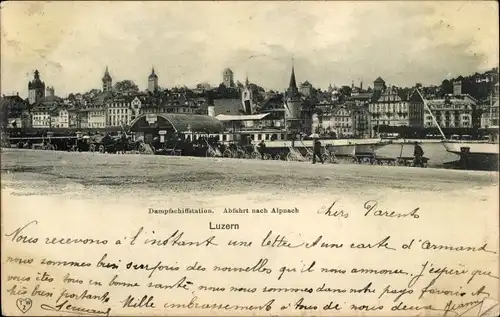 Dampfschiffstation. Abfahrt nach Alpnach
Luzern
Chers Parents
Nous recevons à l'instant une lettre d'une carte d'Armand
nous sommes bien surpris des nouvelles qu'il nous annonse. J'espère que
vous êtes tous en bonne santé, nous sommes dans notre pays favoris et
très bien portants Mille embrassement à tous de nous deux
Germand